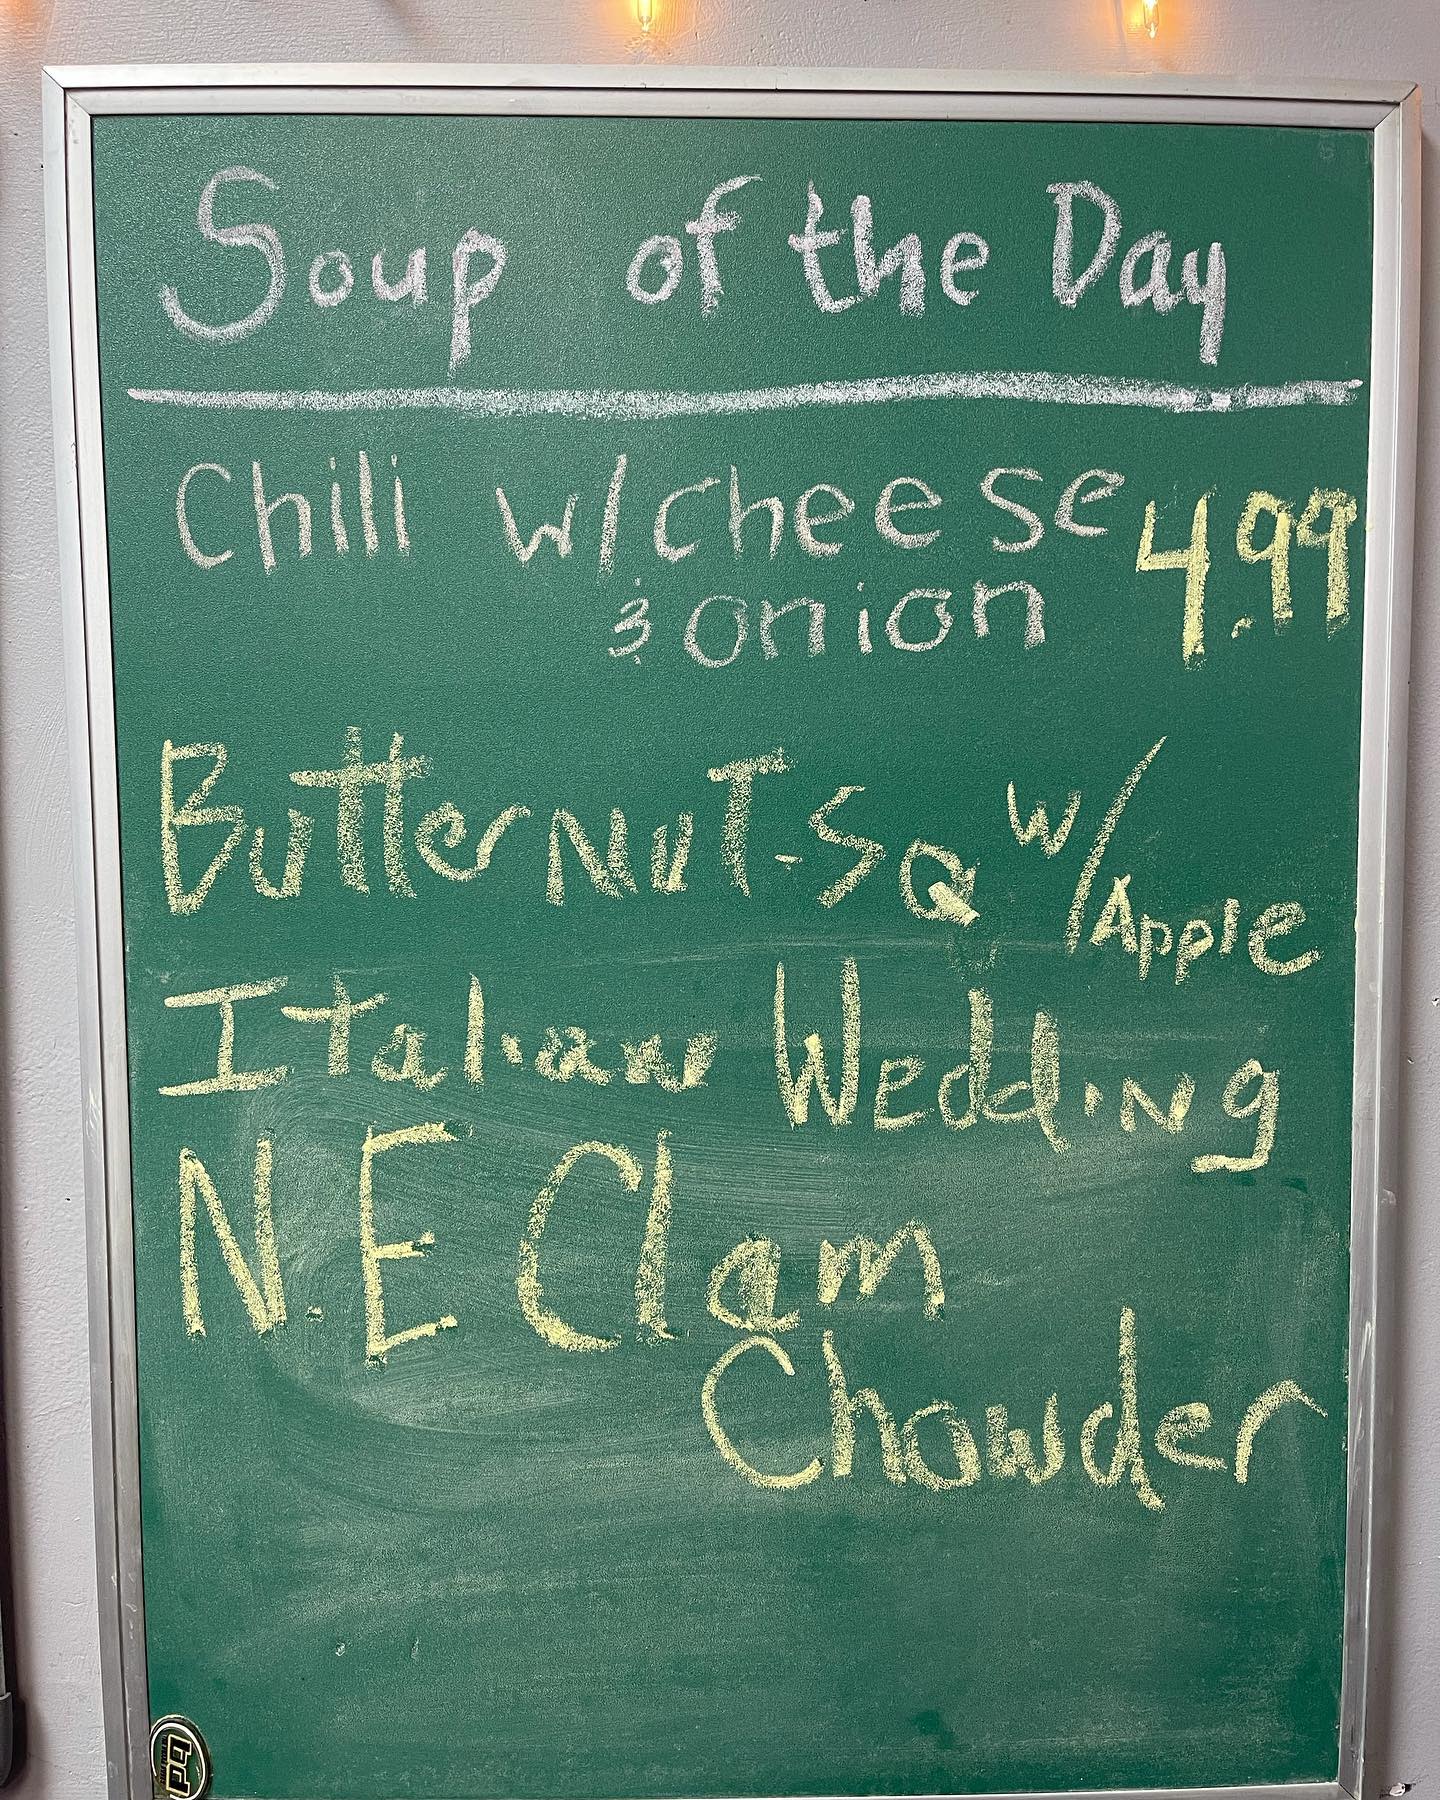 Soup of the Day
Chili w/cheese 4.99
& onion
ButterNuT-SQ w/Apple
Italian Wedding
N.E Clam
Chowder